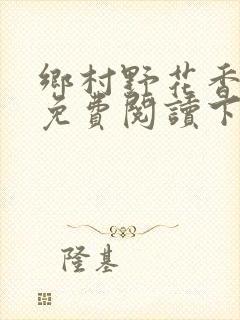 鄉村野花香
免費閱讀下
隆基